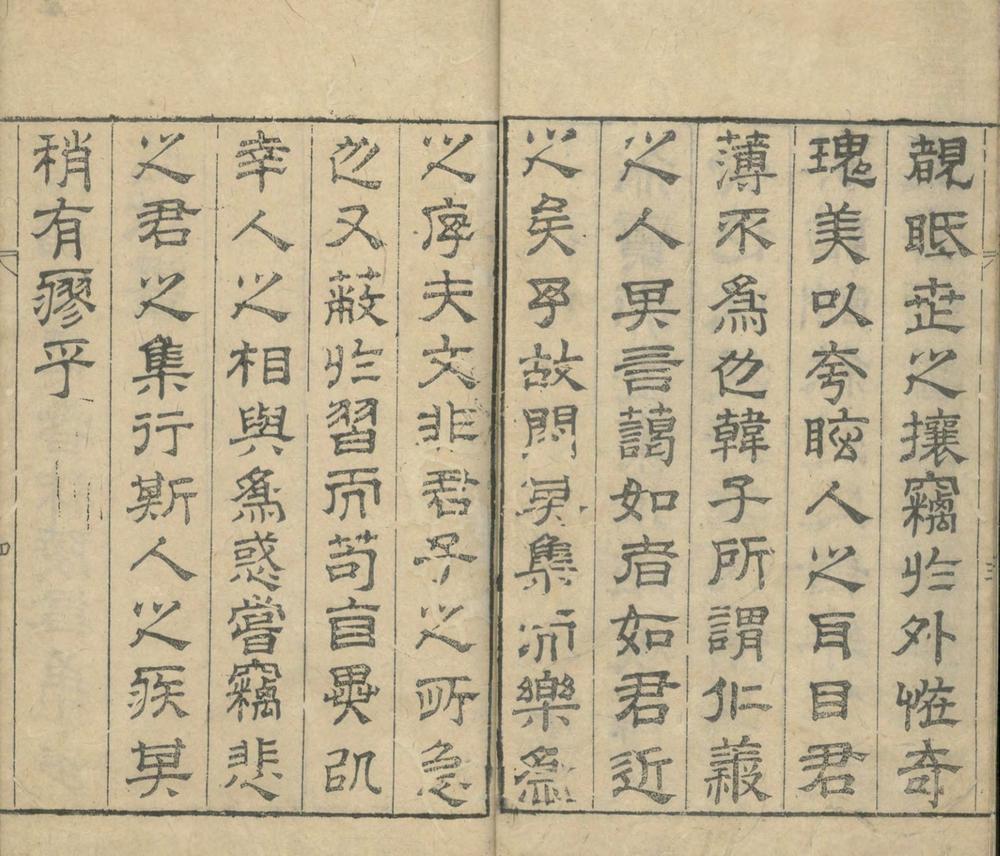 之攘竊於外恠奇
瑰美以夸眩人之耳目君
薄不為也韓子所謂仁義
之人其言藹如者如君近
之矣予故閱其集而樂為
之序夫文非君子之所急
也又蔽於習而苟自異
幸人之相與為惑嘗竊悲
之君之集行斯人之疾其
稍有瘳乎